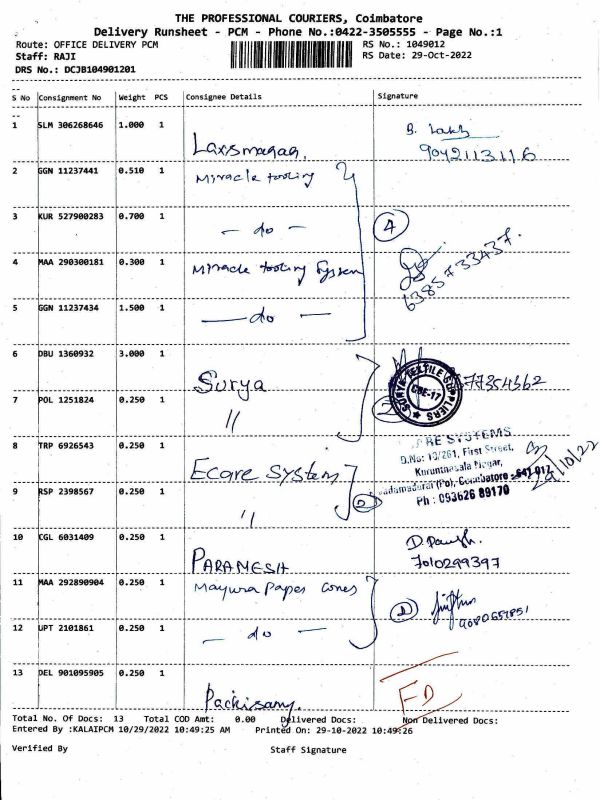 THE PROFESSIONAL COURIERS, Coimbatore
Delivery Runsheet - PCM - Phone No.:0422-3505555 - Page No.:1
Route: OFFICE DELIVERY PCM
RS No.: 1049012
Staff: RAJI
RS Date: 29-Oct-2022
DRS No.: DCJB104901201
S No Consignment No Weight PCS Consignee Details Signature
1 SLM 306268646 1.000 1
9042113116
2 GGN 11237441 0.510 1 Miracle tooling
3 KUR 527900283 0.700 1 - do - 4
4 MAA 290300181 0.300 1 Miracle tooling System
6385733437.
5 GGN 11237434 1.500 1 - do -
6 DBU 1360932 3.000 1 Surya
SURYA TEXTILE SUPPLIERS
CBE-17
7 POL 1251824 0.250 1 "
8 TRP 6926543 0.250 1 Ecare System
CARE SYSTEMS
D.No: 13/261, First Street,
Nagar,
(Po), Coimbatore - 641 017
Ph : 093626 89170
29/10/22
9 RSP 2398567 0.250 1 "
10 CGL 6031409 0.250 1 PARAMESH
7010299397
11 MAA 292890904 0.250 1 Mayura Paper Cones
12 UPT 2101861 0.250 1 - do -
13 DEL 901095905 0.250 1 Packisamy.
FD
Total No. Of Docs: 13 Total COD Amt: 0.00 Delivered Docs: Non Delivered Docs:
Entered By :KALAIPCM 10/29/2022 10:49:25 AM Printed On: 29-10-2022 10:49:26
Verified By Staff Signature